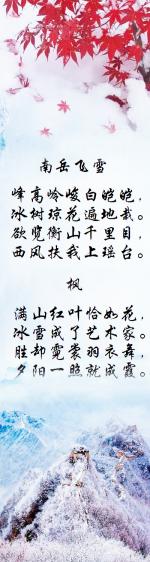 南岳飞雪
峰高岭峻白皑皑，
冰树琼花遍地栽。
欲览衡山千里目，
西风扶我上瑶台。
枫
满山红叶恰如花，
冰雪成了艺术家。
胜却霓裳羽衣舞，
夕阳一照就成霞。